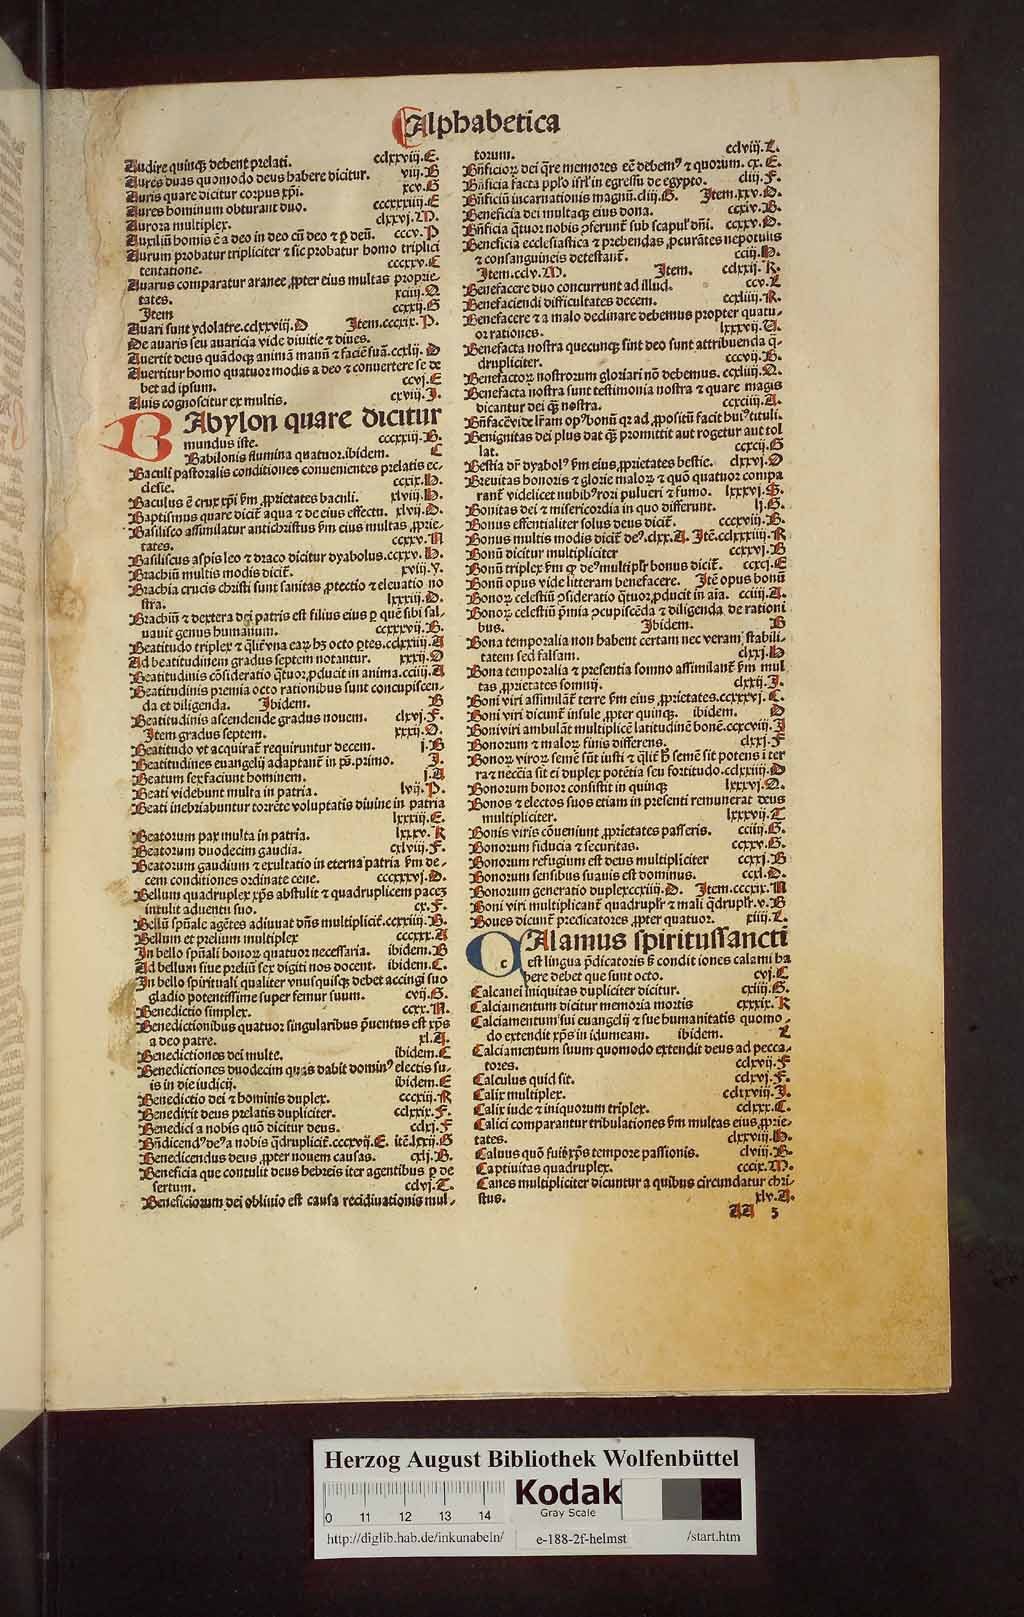 Alphabetica
Audire quinqȝ debent prelati. cclxxviij.E.
Aures duas quomodo deus habere dicitur. viij.B
Auris quare dicitur corpus xp̄i. xcv.G
Aures hominum obturant duo. cccxxxiiij.E
Aurora multiplex. clxxvj.M.
Auxiliū homis ē a deo in deo cū deo ⁊ ꝑ deū. cccv.P
Aurum probatur tripliciter ⁊ sic probatur homo triplici
tentatione. ccccxxv.C
Auarus comparatur aranee ꝓpter eius multas proprie-
tates. xciiij.O
Item ccxxij.G
Auari sunt ydolatre.cclxxviij.D Item.cccxix.P.
De auaris seu auaricia vide diuitie ⁊ diues.
Auertit deus quādoqȝ animā manū ⁊ faciē suā.ccxlij.D
Auertitur homo quatuor modis a deo ⁊ conuertere se de
bet ad ipsum. ccvj.E
Auis cognoscitur ex multis. cxviij.J.
BAbylon quare dicitur
mundus iste. ccccxxij.B.
Babilonis flumina quatuor.ibidem. C
Baculi pastoralis conditiones conuenientes prelatis ec-
clesie. ccxix.H.
Baculus ē crux xp̄i ẜm ꝓprietates baculi. xlviij.H.
Baptismus quare dicit̄ aqua ⁊ de eius effectu. xlvij.D.
Basilisco assimilatur antichristus ẜm eius multas ꝓprie-
tates. ccxxv.N
Basiliscus aspis leo ⁊ draco dicitur dyabolus.ccxxv.H.
Brachiū multis modis dicit̄. xviij.Y.
Brachia crucis christi sunt sanitas ꝓtectio ⁊ eleuatio no
stra. lxxxiij.D.
Brachiū ⁊ dextera dei patris est filius eius ꝑ quē sibi sal-
uauit genus humanum. ccxxxvij.B.
Beatitudo triplex ⁊ q̄lit̄ vna eaꝝ hȝ octo ꝑtes.cclxxiiij.A
Ad beatitudinem gradus septem notantur. xxxij.O
Beatitudinis cōsideratio q̄tuor ꝓducit in anima.cciiij.A
Beatitudinis premia octo rationibus sunt concupiscen-
da et diligenda. Ibidem. B
Beatitudinis ascendende gradus nouem. clxvj.F.
Item gradus septem. xxxij.O.
Beatitudo vt acquirat̄ requiruntur decem. j.B
Beatitudines euangelij adaptant̄ in pš.primo. J.
Beatum sex faciunt hominem. j.A
Beati videbunt multa in patria. lvij.P.
Beati inebriabuntur torrēte voluptatis diuine in patria
lxxxiij.E.
Beatorum pax multa in patria. lxxxv.K
Beatorum duodecim gaudia. cxlviij.F.
Beatorum gaudium ⁊ exultatio in eterna patria ẜm de-
cem conditiones ordinate cene. ccccxxvj.D.
Bellum quadruplex xp̄s abstulit ⁊ quadruplicem pacez
intulit aduentu suo. cx.F.
Bellū sp̄nale agētes adiuuat dn̄s multiplicit̄.ccxxiiij.B.
Bellum et prelium multiplex ccccxx.A
In bello sp̄nali honoꝝ quatuor necessaria. ibidem.B
Ad bellum siue preliū sex digiti nos docent. ibidem.C.
In bello spirituali qualiter vnusquisqȝ debet accingi suo
gladio potentissime super femur suum. cvij.G.
Benedictio simplex. ccxx.N.
Benedictionibus quatuor singularibus p̄uentus est xp̄s
a deo patre. xl.A.
Benedictiones dei multe. ibidem.C
Benedictiones duodecim quas dabit domin⁹ electis su-
is in die iudicij. ibidem.E
Benedictio dei ⁊ hominis duplex. cccxiij.R
Benedixit deus prelatis dupliciter. cclxxix.F.
Benedici a nobis quō dicitur deus. cclxj.F
Bn̄dicend⁹ de⁹ a nobis q̄druplicit̄.cccxvij.E. itē.lxxij.G
Benedicendus deus ꝓpter nouem causas. cxlj.B.
Beneficia que contulit deus hebreis iter agentibus ꝑ de
sertum. ccdvj.T.
Beneficiorum dei obliuio est causa recidiuationis mul-
torum. cclviij.L.
Bn̄ficioꝝ dei q̄re memores eē debem⁹ ⁊ quorum. cx.E.
Bn̄ficia facta pplo isrl' in egressu de egypto. cliij.F.
Bn̄ficiū incarnationis magnū.cliij.G. Item.xxv.D.
Beneficia dei multaqȝ eius dona. ccxiv.B.
Bn̄ficia q̄tuor nobis ꝯferunt̄ sub scapul' dn̄i. ccxxv.D.
Beneficia ecclesiastica ⁊ prebendas ꝓcurātes nepotulis
⁊ consanguineis detestant̄. cciij.H.
Item.ccdv.M. Item. cclxxij.K.
Benefacere duo concurrunt ad illud. ccv.L
Benefaciendi difficultates decem. ccxliiij.R.
Benefacere ⁊ a malo declinare debemus propter quatu-
or rationes. lxxxvij.U.
Benefacta nostra quecunqȝ sint deo sunt attribuenda q̄-
drupliciter. cccvij.B.
Benefactoꝝ nostrorum gloriari nō debemus. ccxliiij.O.
Benefacta nostra sunt testimonia nostra ⁊ quare magis
dicantur dei qȝ nostra. ccxciiij.A.
Bn̄facē vide lr̄am op⁹ bonū qꝛ ad ꝓpositū facit hui⁹ tituli.
Benignitas dei plus dat qȝ promittit aut rogetur aut tol
lat. ccxcij.G
Bestia dr̄ dyabol⁹ ẜm eius ꝓprietates bestie. clxxvj.O
Breuitas honoris ⁊ glorie maloꝝ ⁊ quō quatuor compa
rant̄ videlicet nubib⁹ rori pulueri ⁊ fumo. lxxxvj.S.
Bonitas dei ⁊ misericordia in quo differunt. lj.G.
Bonus essentialiter solus deus dicit̄. cccxviij.B.
Bonus multis modis dicit̄ de⁹.clxx.A. Itē.cclxxxiiij.R
Bonū dicitur multipliciter ccxxvj.B
Bonū triplex ẜm qȝ de⁹ multiplr̄ bonus dicit̄. ccxcj.E
Bonū opus vide litteram benefacere. Itē opus bonū
Bonoꝝ celestiū ꝯsideratio q̄tuor ꝓducit in aīa. cciiij.A.
Bonoꝝ celestiū p̄mia ꝯcupiscēda ⁊ diligenda de rationi
bus. Ibidem. B
Bona temporalia non habent certam nec veram stabili-
tatem sed falsam. clxxj.H
Bona temporalia ⁊ presentia somno assimilant̄ ẜm mul
tas ꝓprietates somnij. clxxij.J.
Boni viri assimilāt̄ terre ẜm eius ꝓprietates.ccxxxvj.C.
Boni viri dicunt̄ insule ꝓpter quinqȝ. ibidem. D
Boni viri ambulāt multiplicē latitudinē bonē.ccxcviij.J
Bonorum ⁊ maloꝝ finis differens. clxxj.F
Bonoꝝ viroꝝ semē sūt iusti ⁊ q̄lit̄ hȝ semē sit potens i ter
ra ⁊ necc̄ia sit ei duplex potētia seu fortitudo.cclxxiiij.D
Bonorum bonor consistit in quinqȝ lxxxvj.O.
Bonos ⁊ electos suos etiam in presenti remunerat deus
multipliciter. lxxxvij.T
Bonis viris cōueniunt ꝓprietates passeris. cciiij.G.
Bonorum fiducia ⁊ securitas. ccxxv.G.
Bonorum refugium est deus multipliciter ccxxj.B
Bonorum sensibus suauis est dominus. ccxl.D.
Bonorum generatio duplex.ccxiiij.D. Item.cccxix.N
Boni viri multiplicant̄ quadruplr̄ ⁊ mali q̄druplr̄.v.B
Boues dicunt̄ predicatores ꝓpter quatuor. xiiij.L.
CAlamus spiritussancti
est lingua p̄dicatoris ẜ conditiones calami ha
bere debet que sunt octo. cvj.C
Calcanei iniquitas dupliciter dicitur. cxliij.G.
Calciamentum dicitur memoria mortis cxxxix.K
Calciamentum sui euangelij ⁊ sue humanitatis quomo-
do extendit xp̄s in idumeam. ibidem. L
Calciamentum suum quomodo extendit deus ad pecca-
tores. cclxvij.F
Calculus quid sit. cclxvj.F.
Calix multiplex. cclxxviij.J.
Calix iude ⁊ iniquorum triplex. cclxxx.C.
Calici comparantur tribulationes ẜm multas eius ꝓprie-
tates. clxxviij.H.
Caluus quō fuit xp̄s tempore passionis. clviij.B.
Captiuitas quadruplex. cccix.M.
Canes multipliciter dicuntur a quibus circundatur chri-
stus. xlv.A.
AA 3
Herzog August Bibliothek Wolfenbüttel
0 11 12 13 14
Kodak
Gray Scale
http://diglib.hab.de/inkunabeln/ e-188-2f-helmst /start.htm